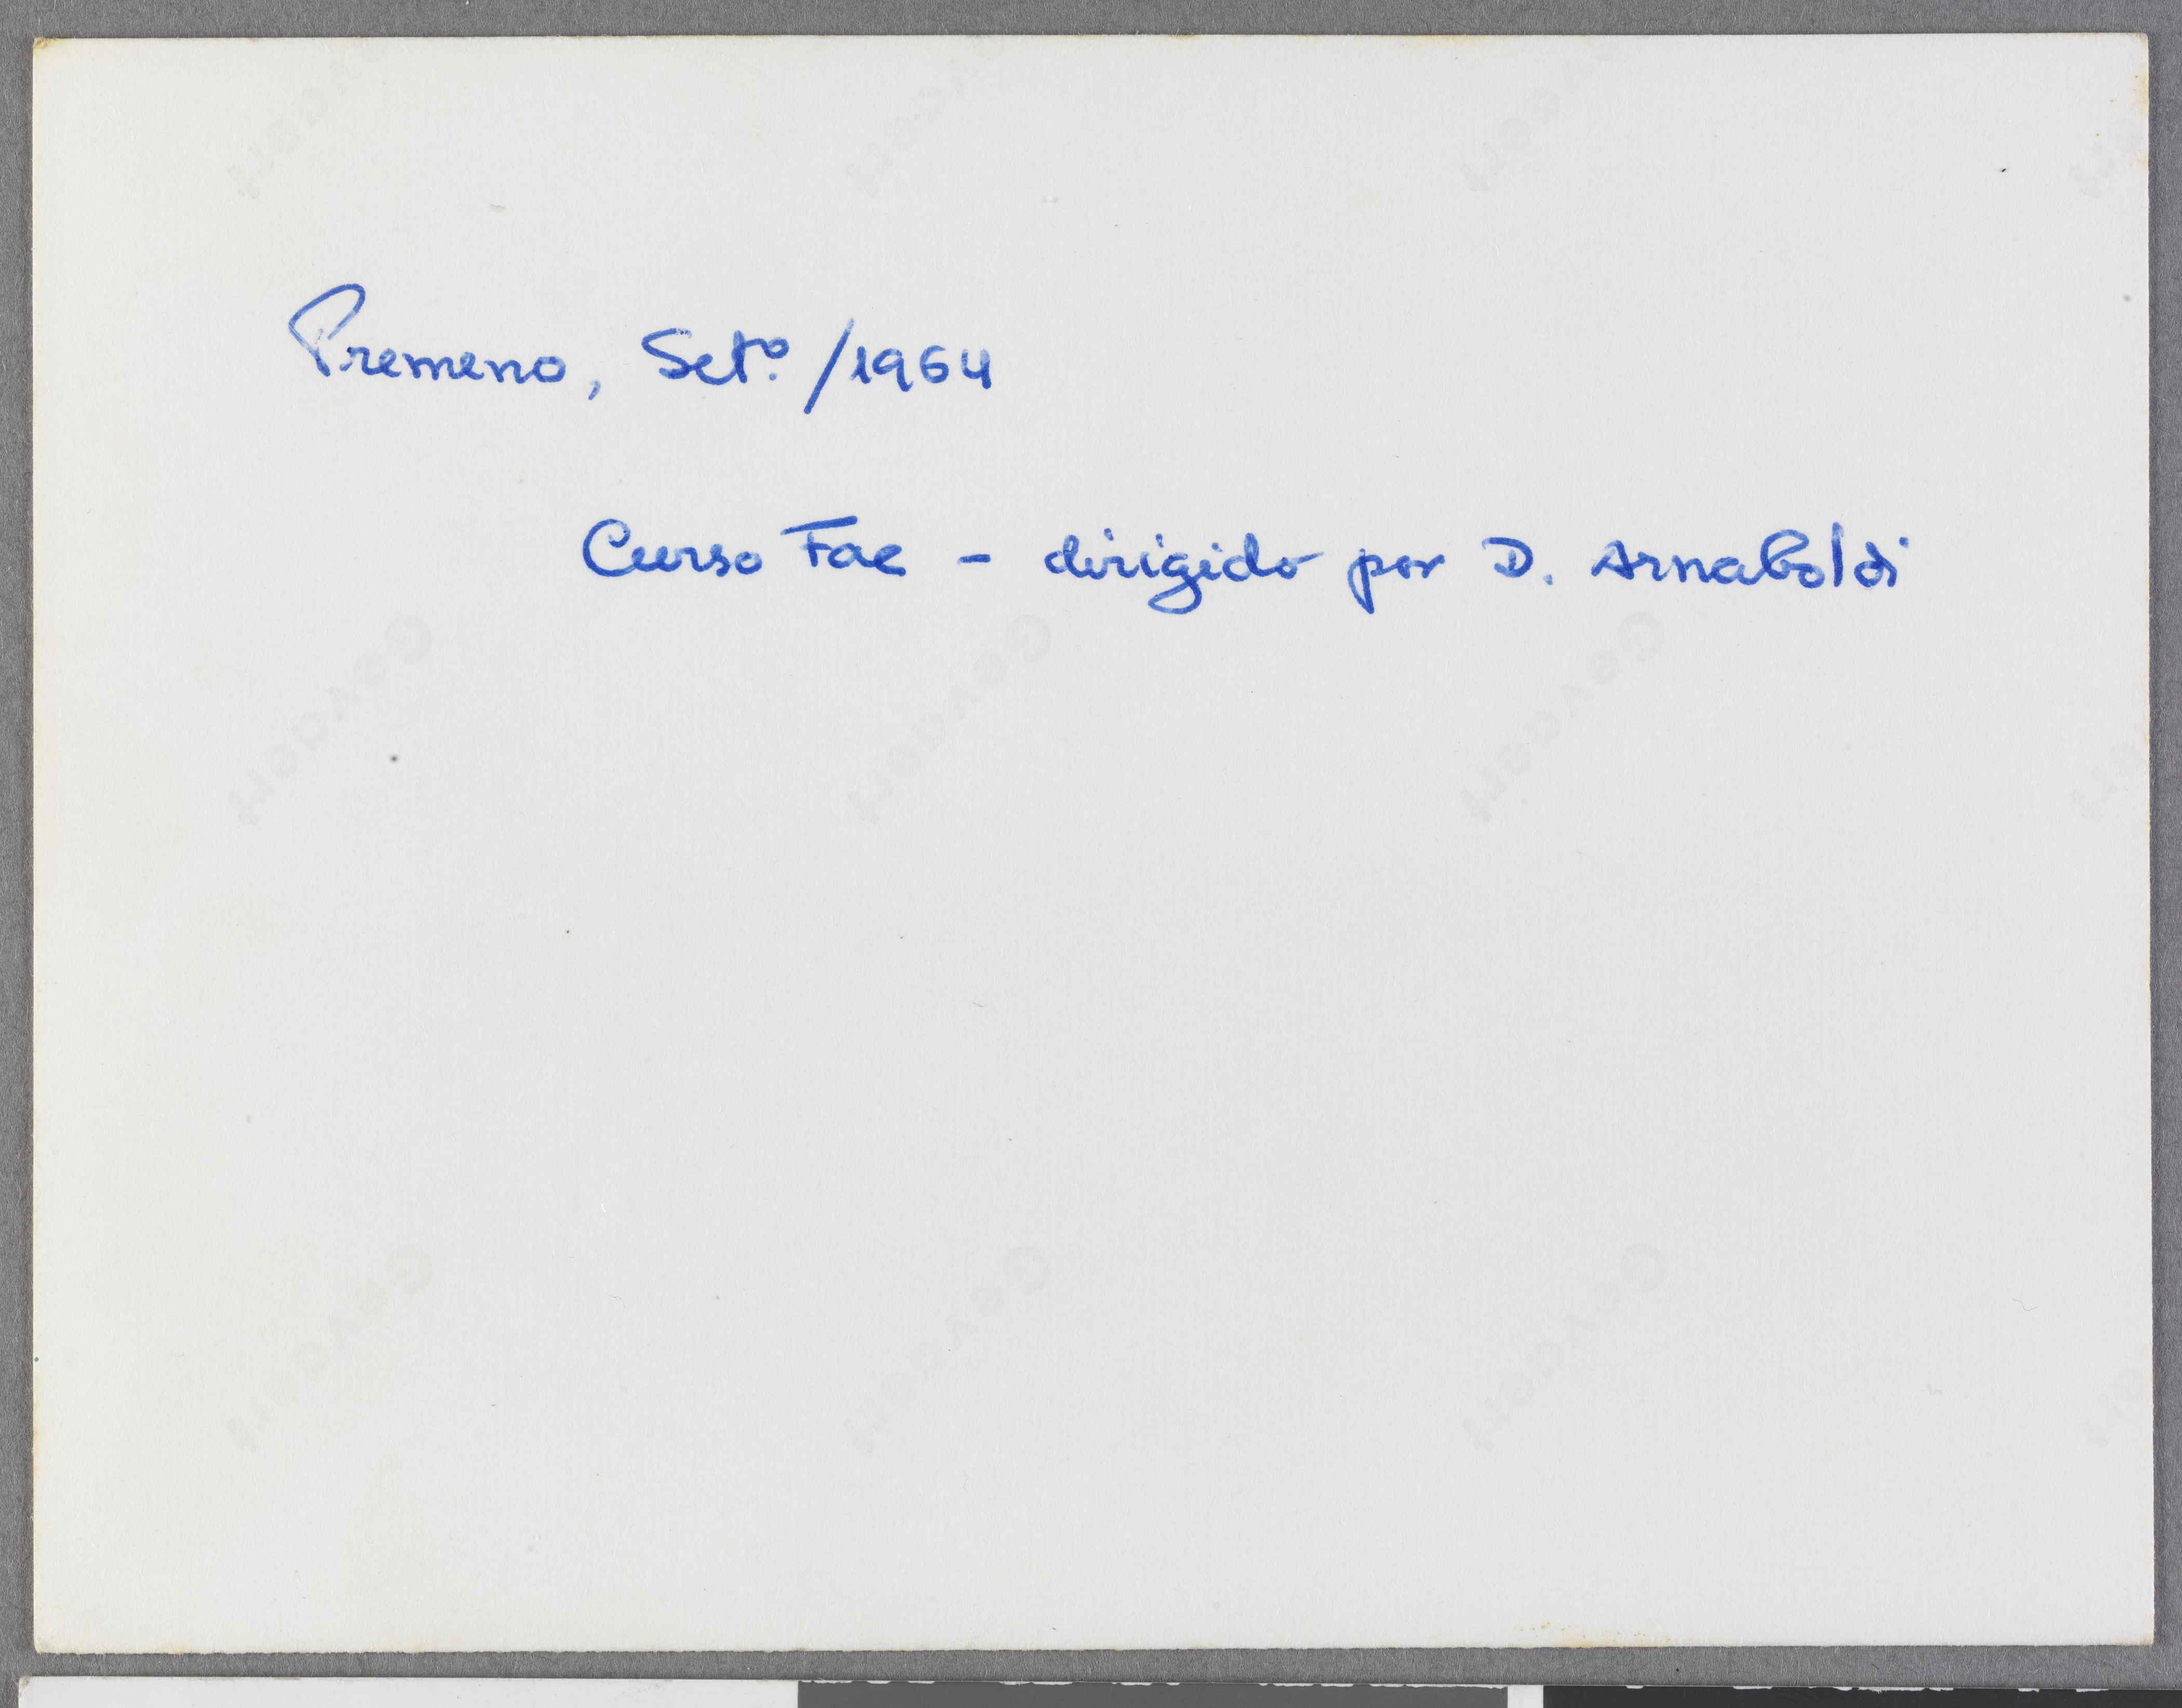 Premeno, Setº/1964
Curso Fae - dirigido por D. Arnaboldi